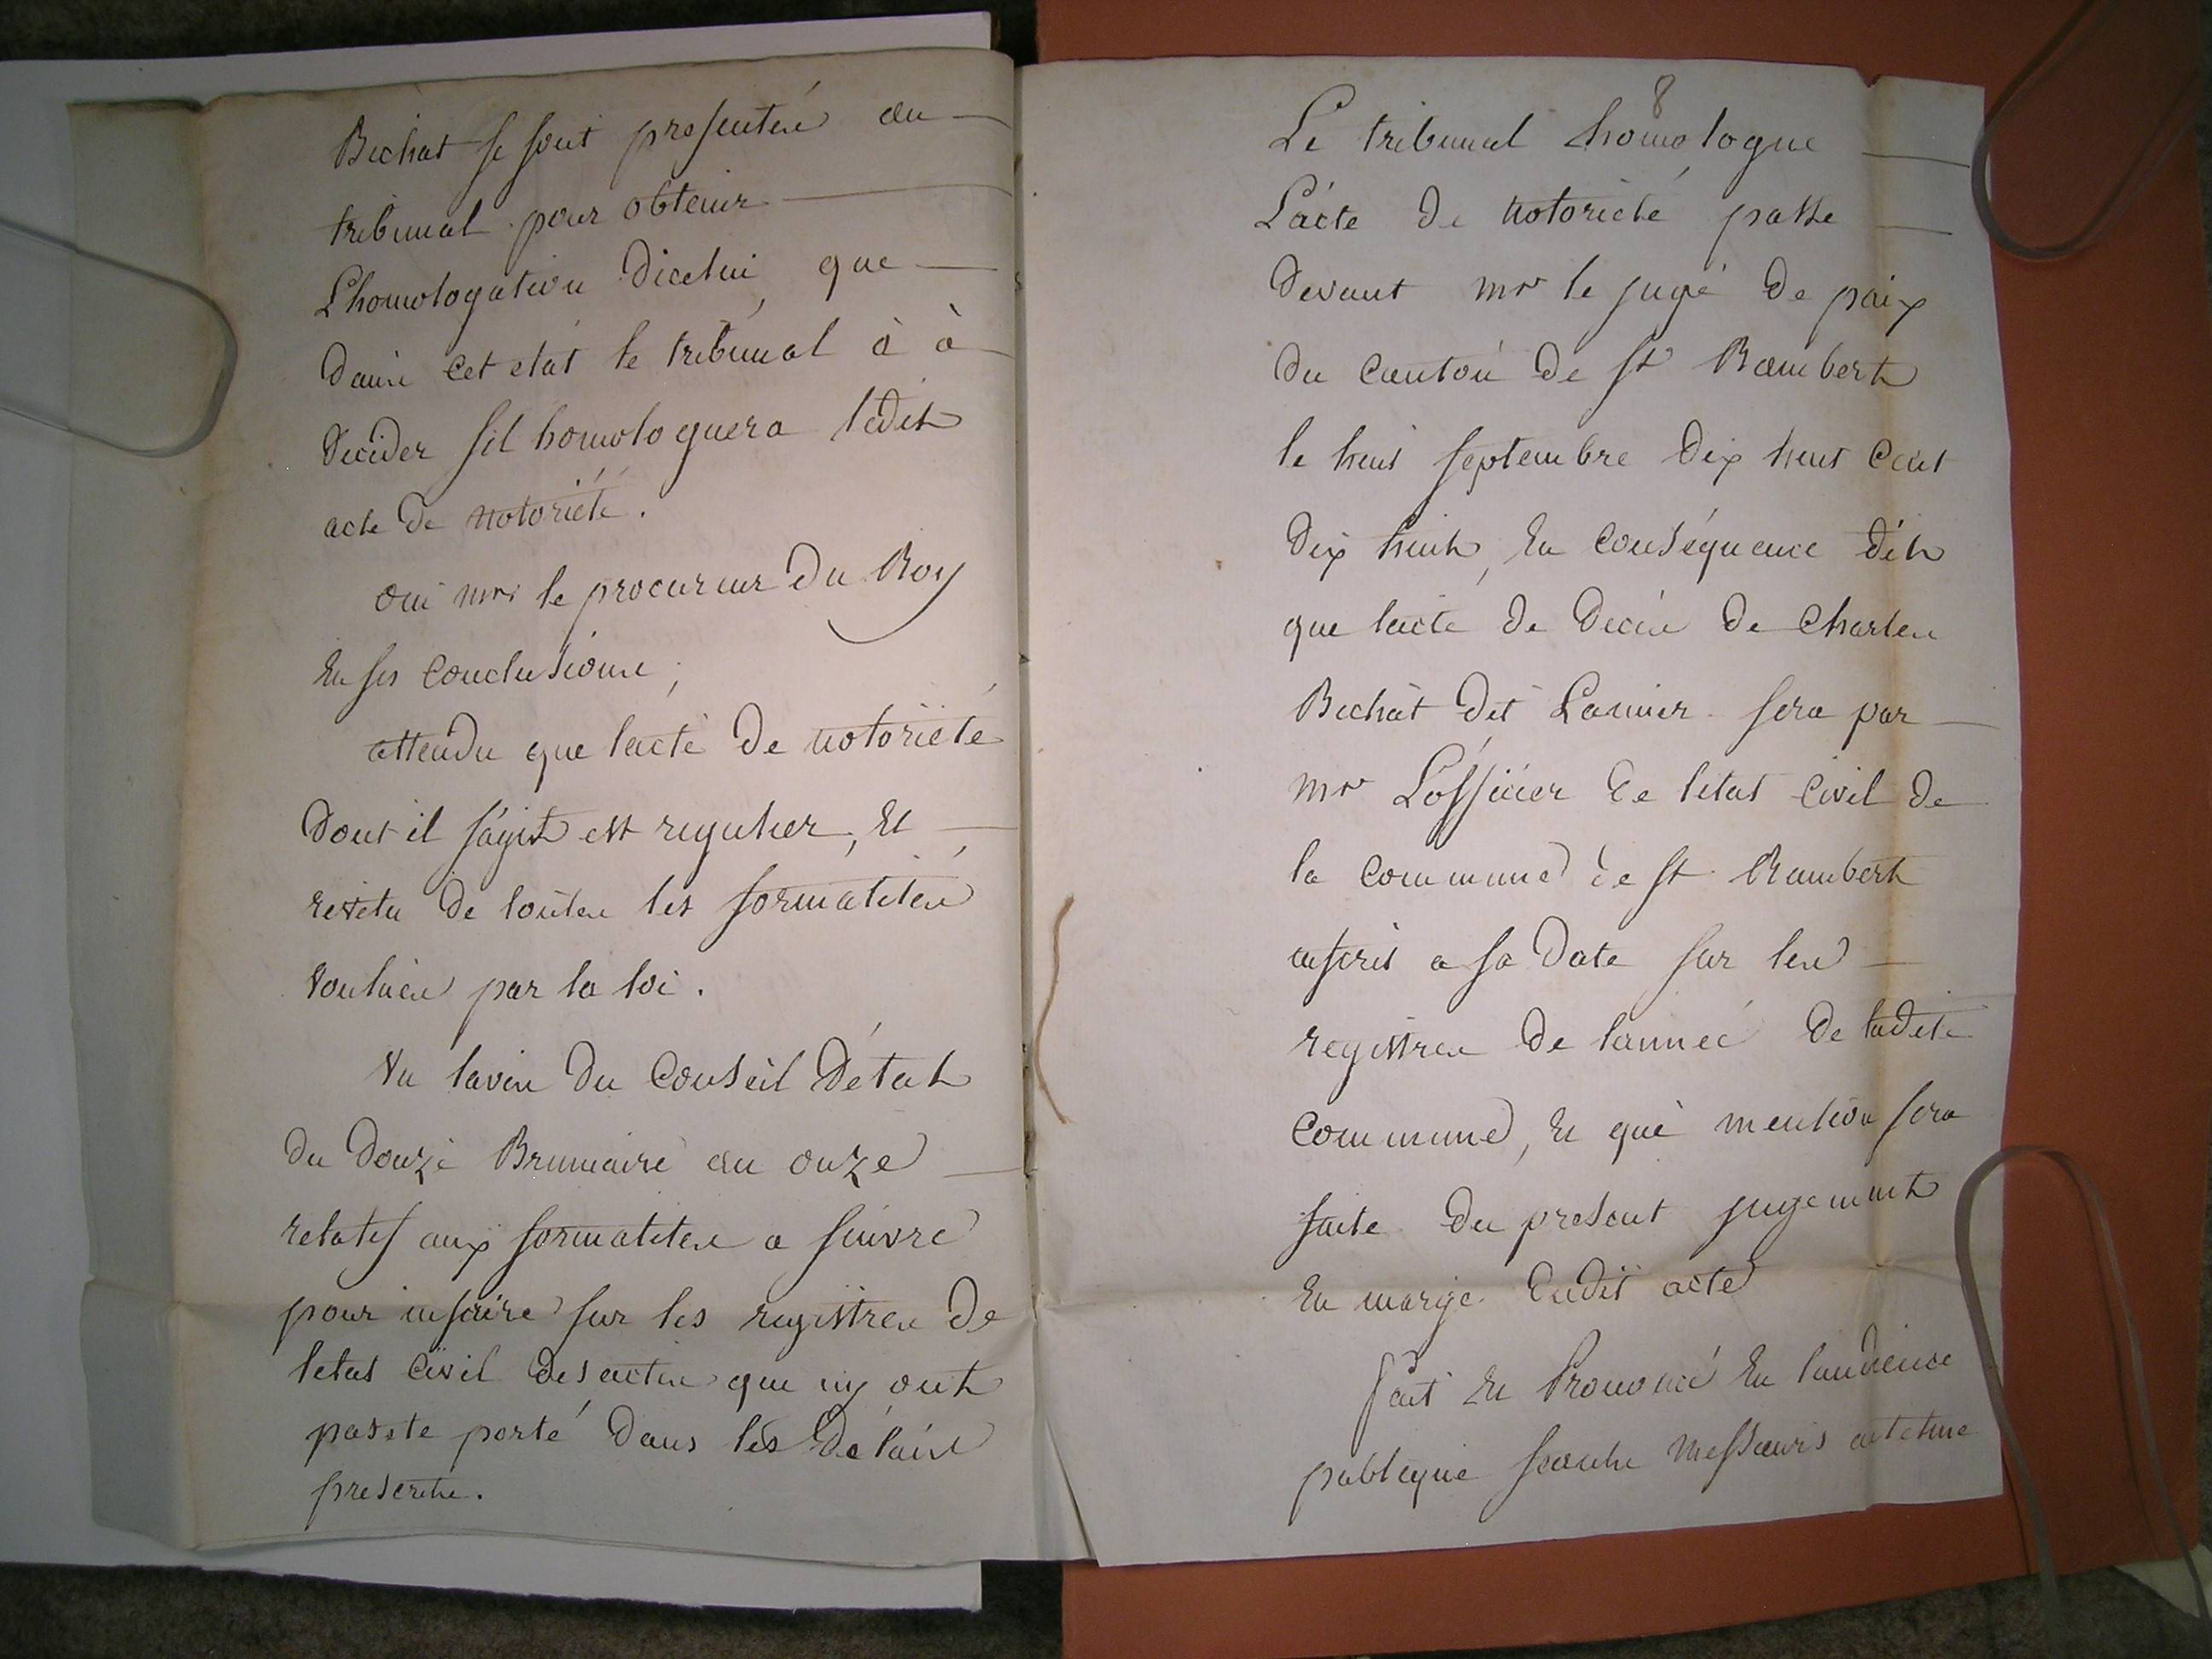 Bichat se sont presentés au
tribunal pour obtenir
L'homologation d'icelui, que
dans cet etat le tribunal à à
décider s'il homologuera ledit
acte de notoriété.
oui mr le procureur du Roy
en ses conclusions;
attendu que l'acte de notoriété
dont il s'agit est regulier, et
revetu de toutes les formalités
voulues par la loi.
Vu l'avis du Conseil d'état
du douze Brumaire an onze
relatif aux formalités a suivre
pour inscrire sur les registres de
l'etat civil des actes que n'y ont
pas été porté dans les délais
prescrits.
8
Le tribunal homologue
L'acte de notoriété passé
devant mr le juge de paix
du canton de St Rambert
le huit septembre dix huit cent
dix huit, en conséquence dit
que l'acte de décès de Charles
Bichat dit Lanier sera par
mr L'officier de l'etat civil de
la commune de St Rambert
inscrit a sa date sur les
registres de l'année de ladite
commune, et que mention sera
faite du present jugement
en marge dudit acte
fait et Prononcé en l'audience
publique seants messieurs